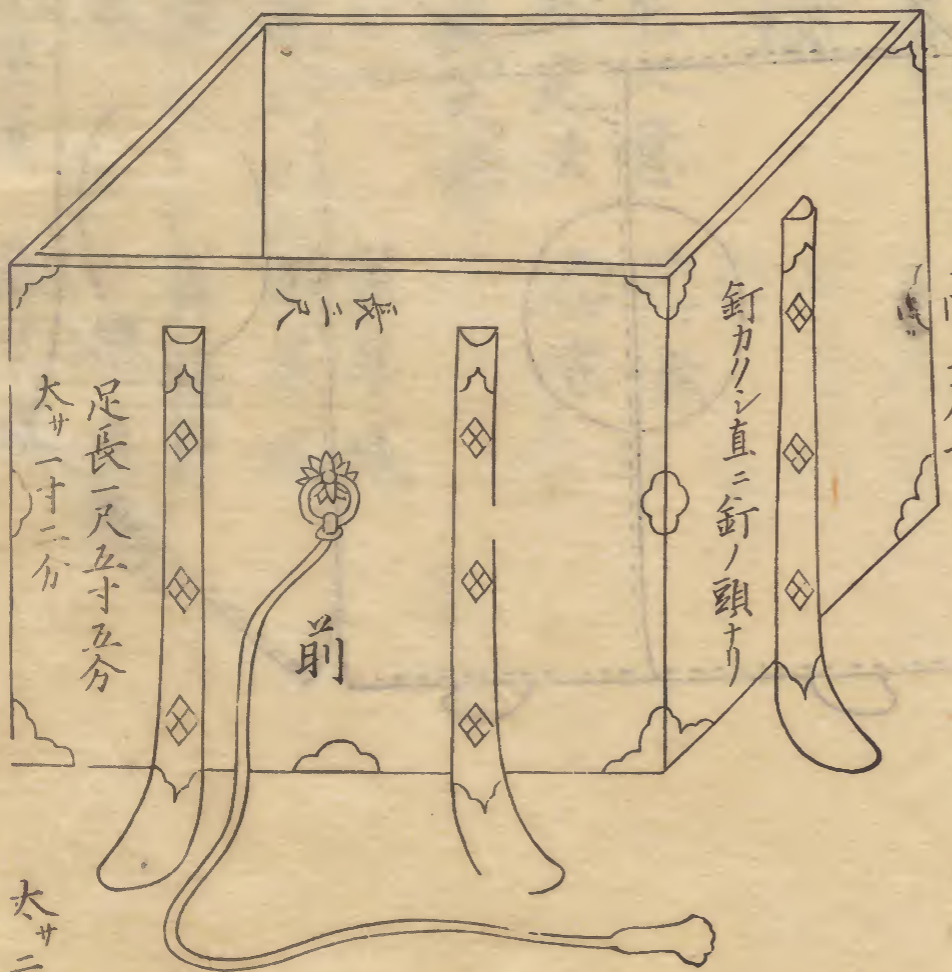 釘カクシ直ニ釘ノ頭ナリ
長二尺
前
足長一尺五寸五分
太サ一寸二分
太サ二